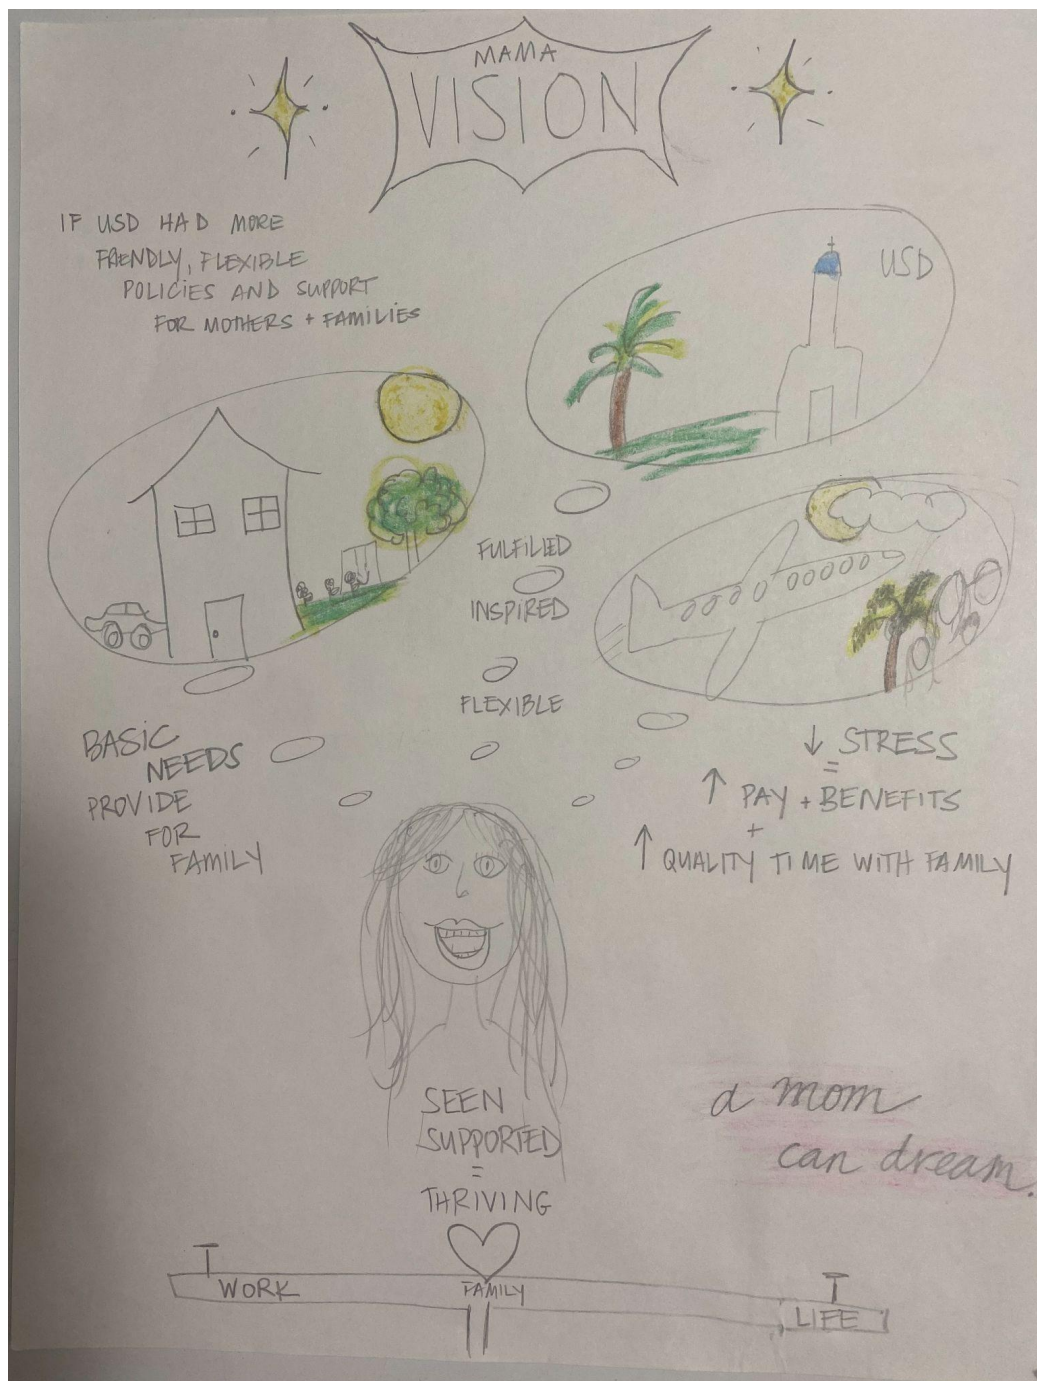 MAMA
VISION
IF USD HAD MORE
FRENDLY, FLEXIBLE
POLICIES AND SUPPORT
FOR MOTHERS + FAMILIES
USD
FULFILLED
INSPIRED
FLEXIBLE
BASIC
NEEDS
PROVIDE
FOR
FAMILY
↓ STRESS
=
↑ PAY + BENEFITS
+
↑ QUALITY TIME WITH FAMILY
SEEN
SUPPORTED
=
THRIVING
a mom
can dream.
WORK
FAMILY
LIFE